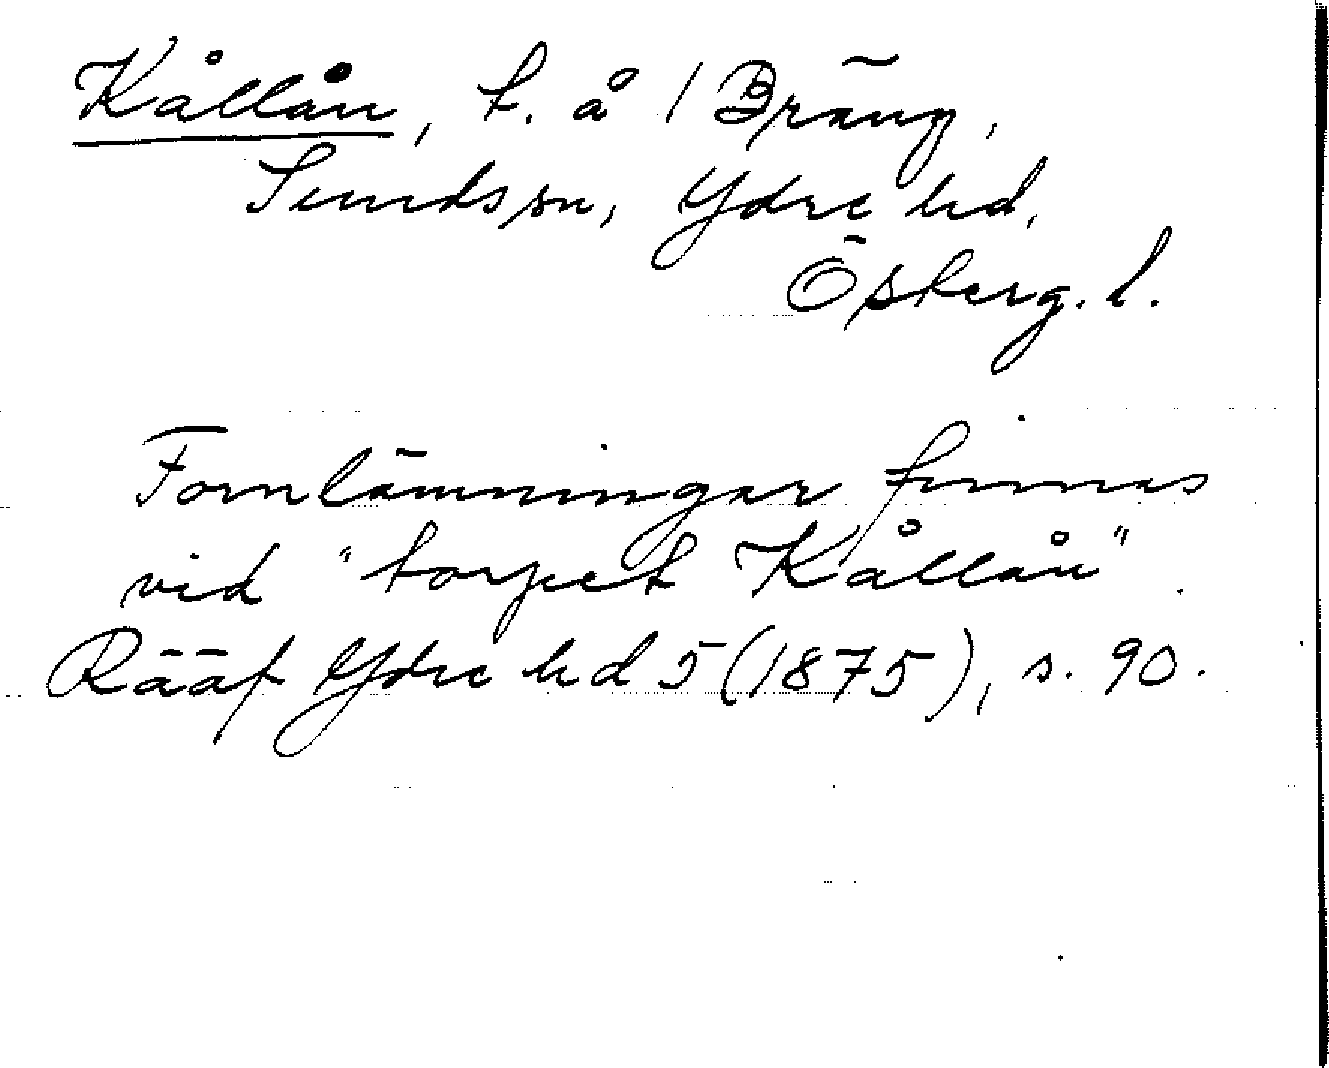 Kållån, t. å 1 Bräng,
Sunds sn, Ydre hd,
Östergl. l.
Fornlämningar finnas
vid "torpet Kållån".
Rääf Ydre hd 5 (1875), s. 90.